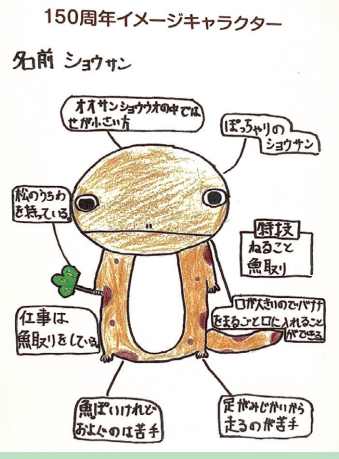 150周年イメージキャラクター
名前 ショウサン
オオサンショウウオの中では
せが小さい方
ぽっちゃりの
ショウサン
松のうちわ
を持っている
特技
ねること
魚取り
口が大きいのでバナナ
をまるごと口に入れること
ができる
仕事は
魚取りをしている
魚ぽいけれど
およぐのは苦手
足がみじかいから
走るのが苦手